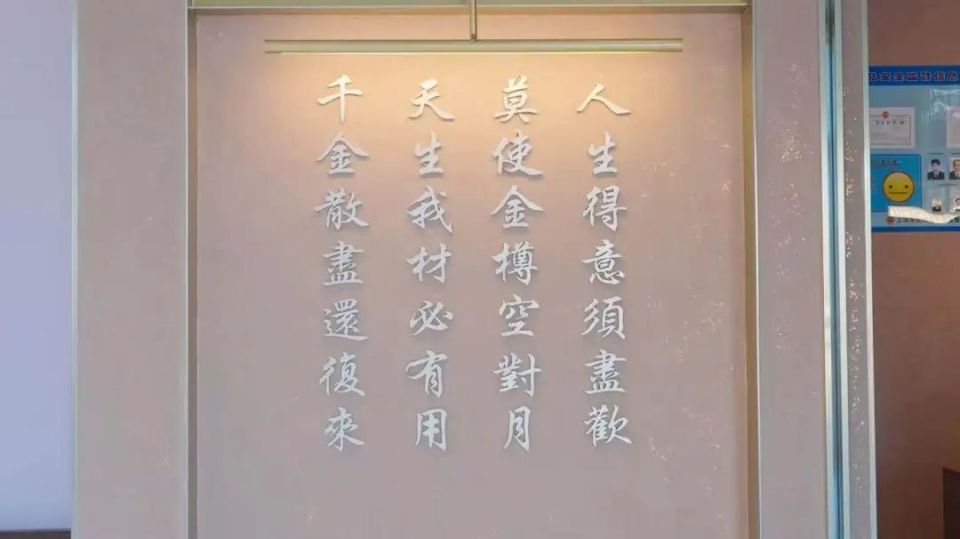 人生得意須盡歡
莫使金樽空對月
天生我材必有用
千金散盡還復來